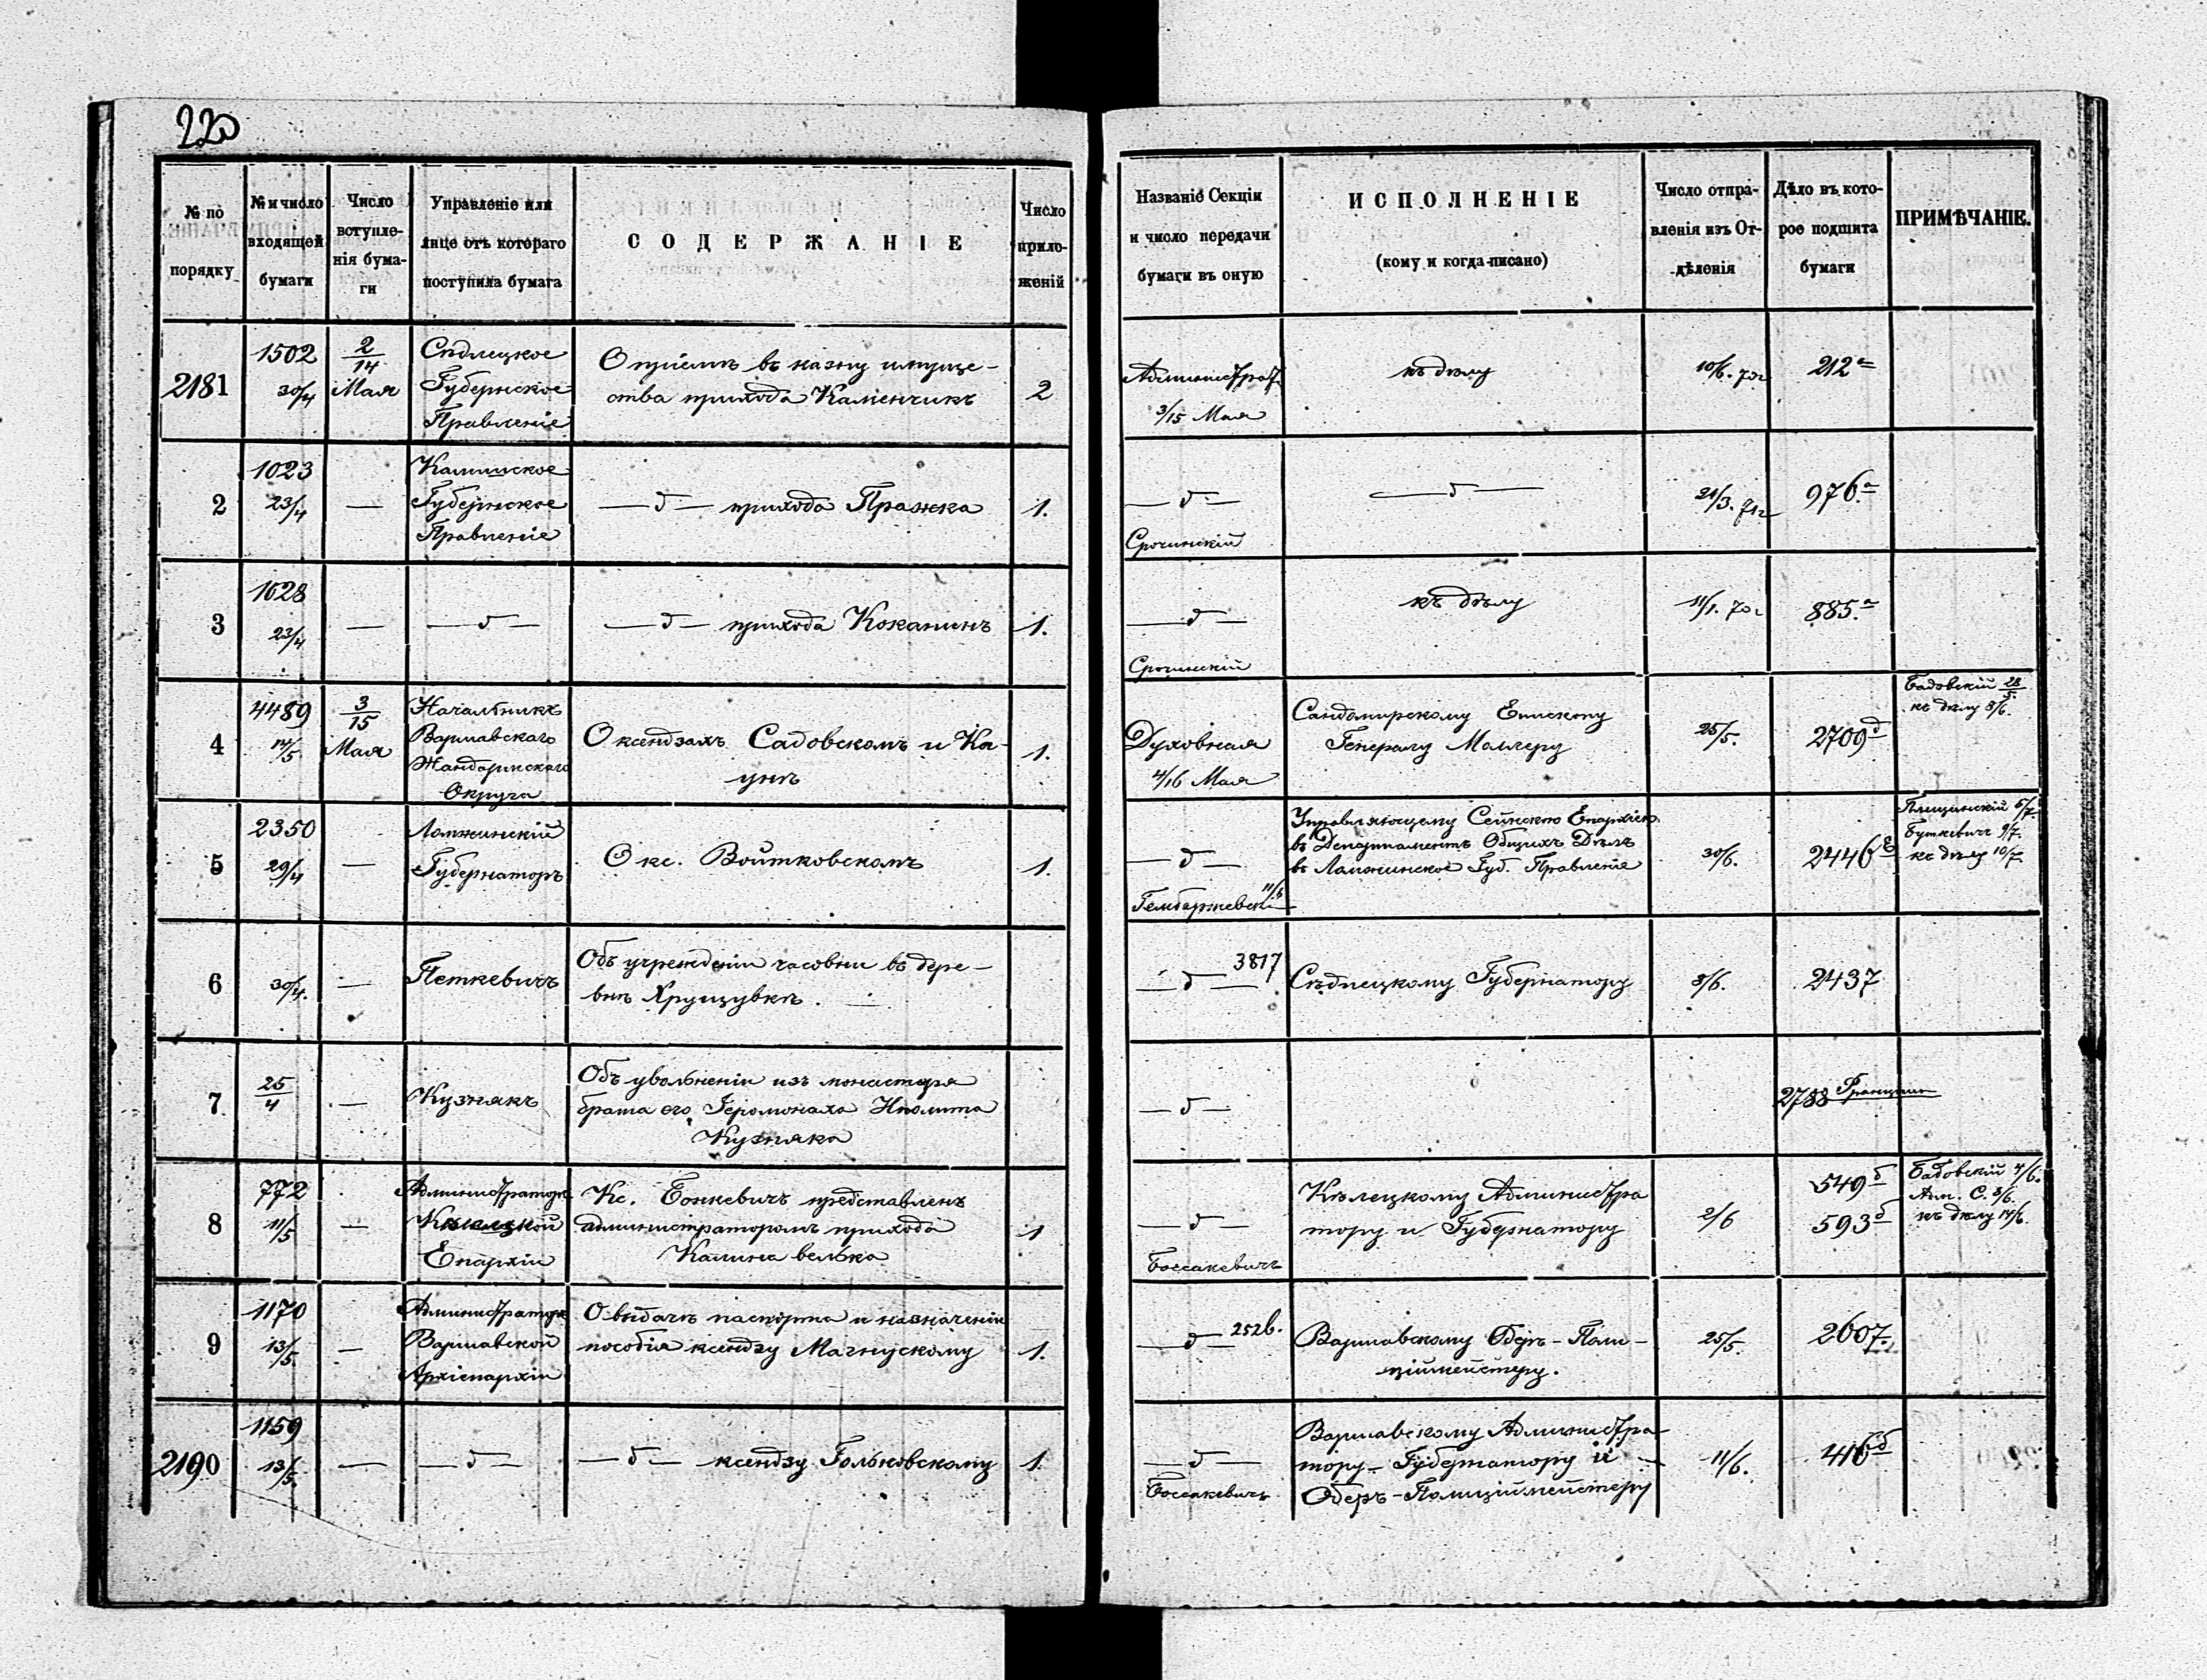 220
№ по порядку
№ и число входящей бумаги
Число вступле-нія бума-ги
Управленіе или лице отъ котораго поступила бумага
СОДЕРЖАНІЕ
Число прило-женій
Названіе Секціи и число передачи бумаги въ оную
ИСПОЛНЕНІЕ
(кому и когда писано)
Число отпра-вленія изъ От-дѣленія
Дѣло въ кото-рое подшита бумаги
ПРИМѢЧАНІЕ.
2181
1502
30/4
2/14
Мая
Сѣдлецкое
Губернское
Правленіе
О пріемѣ въ казну имуще-
ства прихода Каменчикъ
2
Администрат.
3/15 Мая
къ дѣлу
10/6. 70г
212а
2
1023
23/4
—
Калишское
Губернское
Правленіе
— д — прихода Пражка
1.
— д —
Срочинскій
— д —
21/3. 71г
976.а
3
1028
23/4
—
— д —
— д — прихода Коканинъ
1.
— д —
Срочинскій
къ дѣлу
11/1. 70г
885.а
4
4489
14/5.
3/15
Мая
Начальникъ
Варшавскаго
Жандармскаго
Округа
О ксендзахъ Садовскомъ и Ка-
унѣ
1.
Духовная
4/16 Мая
Сандомирскому Епископу
Генералу Моллеру
25/5.
2709д
Бадовскій 28/5.
къ дѣлу 8/6.
5
2350
29/4
—
Ломжинскій
Губернаторъ
О кс. Войтковскомъ
1.
— д —
11/6
Гембаржевскій
Управляющему Сейнскою Епархіею
въ Департаментъ Общихъ Дѣлъ
въ Ломжинское Губ. Правленіе
30/6.
2446
5/7.
Буткевичъ 9/7.
къ дѣлу 10/7.
6
30/4.
—
Петкевичъ
Объ учрежденіи часовни въ дере-
внѣ Хрущувкѣ.
— д — 3817
Сѣдлецкому Губернатору
8/6.
2437
7
25/4
—
Кузнякъ
Объ увольненіи изъ монастыря
брата его Іеромонаха Иполита
Кузняка
— д —
2788
8
772
11/5
—
Администраторъ
Кѣлецкой
Епархіи
Кс. Бонкевичъ представленъ
администраторомъ прихода
Калина велька
1
— д —
Боссакевичъ
Кѣлецкому Администра
тору и Губернатору
2/6
549б
593б
Бадовскій 4/6.
Адм. С. 8/6.
къ дѣлу 14/6.
9
1170
13/5.
—
Администраторъ
Варшавской
Архіепархіи
О выдачѣ паспорта и назначеніи
пособія ксендзу Магнускому
1.
— д — 2526.
Варшавскому Оберъ-Поли-
ціймейстеру.
25/5.
2607.
2190
1159
13/5.
—
— д —
— д — ксендзу Гольковскому
1.
— д —
Боссакевичъ
Варшавскому Администра-
тору - Губернатору и
Оберъ-Полиціймейстеру
11/6.
416б